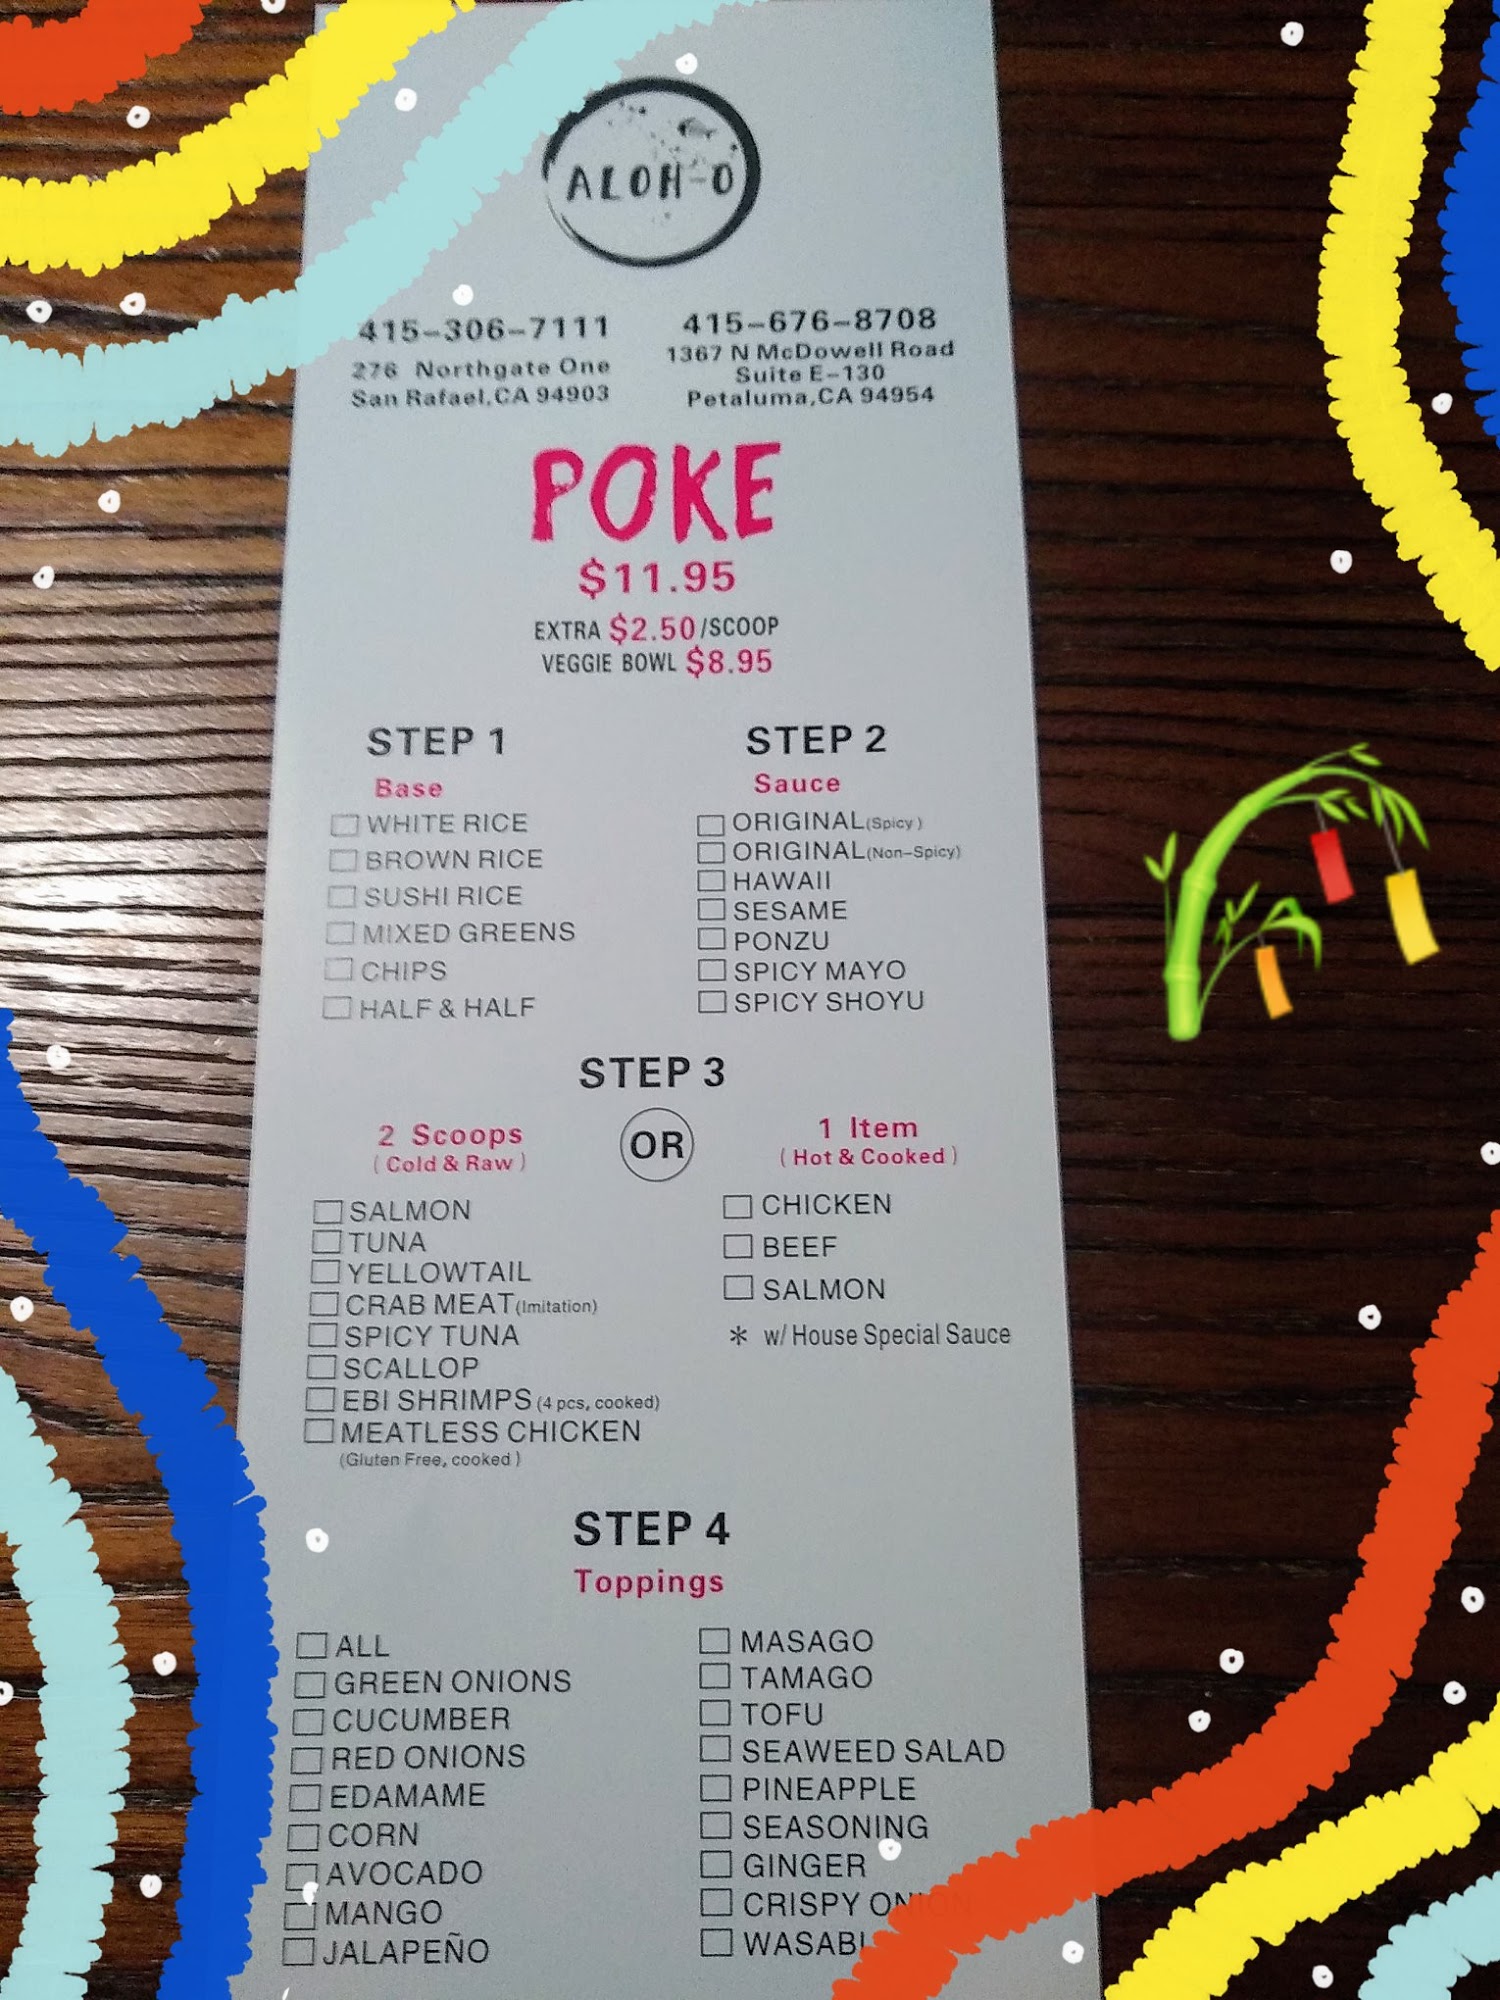 ALOH-O
415-306-7111
276 Northgate One
San Rafael,CA 94903
415-676-8708
1367 N McDowell Road
Suite E-130
Petaluma,CA 94954
POKE
$11.95
EXTRA $2.50/SCOOP
VEGGIE BOWL $8.95
STEP 1
Base
WHITE RICE
BROWN RICE
SUSHI RICE
MIXED GREENS
CHIPS
HALF & HALF
STEP 2
Sauce
ORIGINAL(Spicy)
ORIGINAL(Non-Spicy)
HAWAII
SESAME
PONZU
SPICY MAYO
SPICY SHOYU
STEP 3
2 Scoops
(Cold & Raw)
OR
1 Item
(Hot & Cooked)
SALMON
TUNA
YELLOWTAIL
CRAB MEAT(Imitation)
SPICY TUNA
SCALLOP
EBI SHRIMPS(4 pcs, cooked)
MEATLESS CHICKEN
(Gluten Free, cooked)
CHICKEN
BEEF
SALMON
* w/ House Special Sauce
STEP 4
Toppings
ALL
GREEN ONIONS
CUCUMBER
RED ONIONS
EDAMAME
CORN
AVOCADO
MANGO
JALAPEÑO
MASAGO
TAMAGO
TOFU
SEAWEED SALAD
PINEAPPLE
SEASONING
GINGER
CRISPY ONION
WASABI